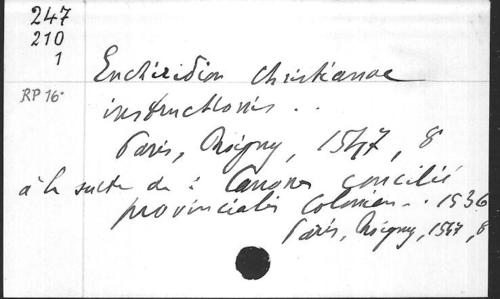 247
210
1
RP 16.
Enchiridion Christianae
instructionis . .
Paris, Roigny, 1547, 8
à la suite de : Canones concilii
provincialis Colonien.. 1536
Paris, Roigny, 1547, 8